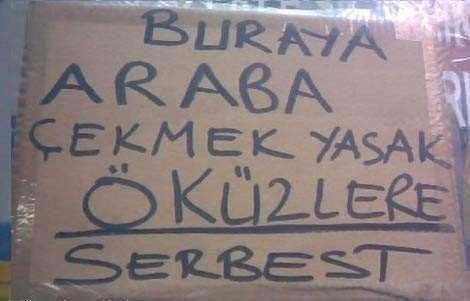 BURAYA
ARABA
ÇEKMEK YASAK
ÖKÜZLERE
SERBEST